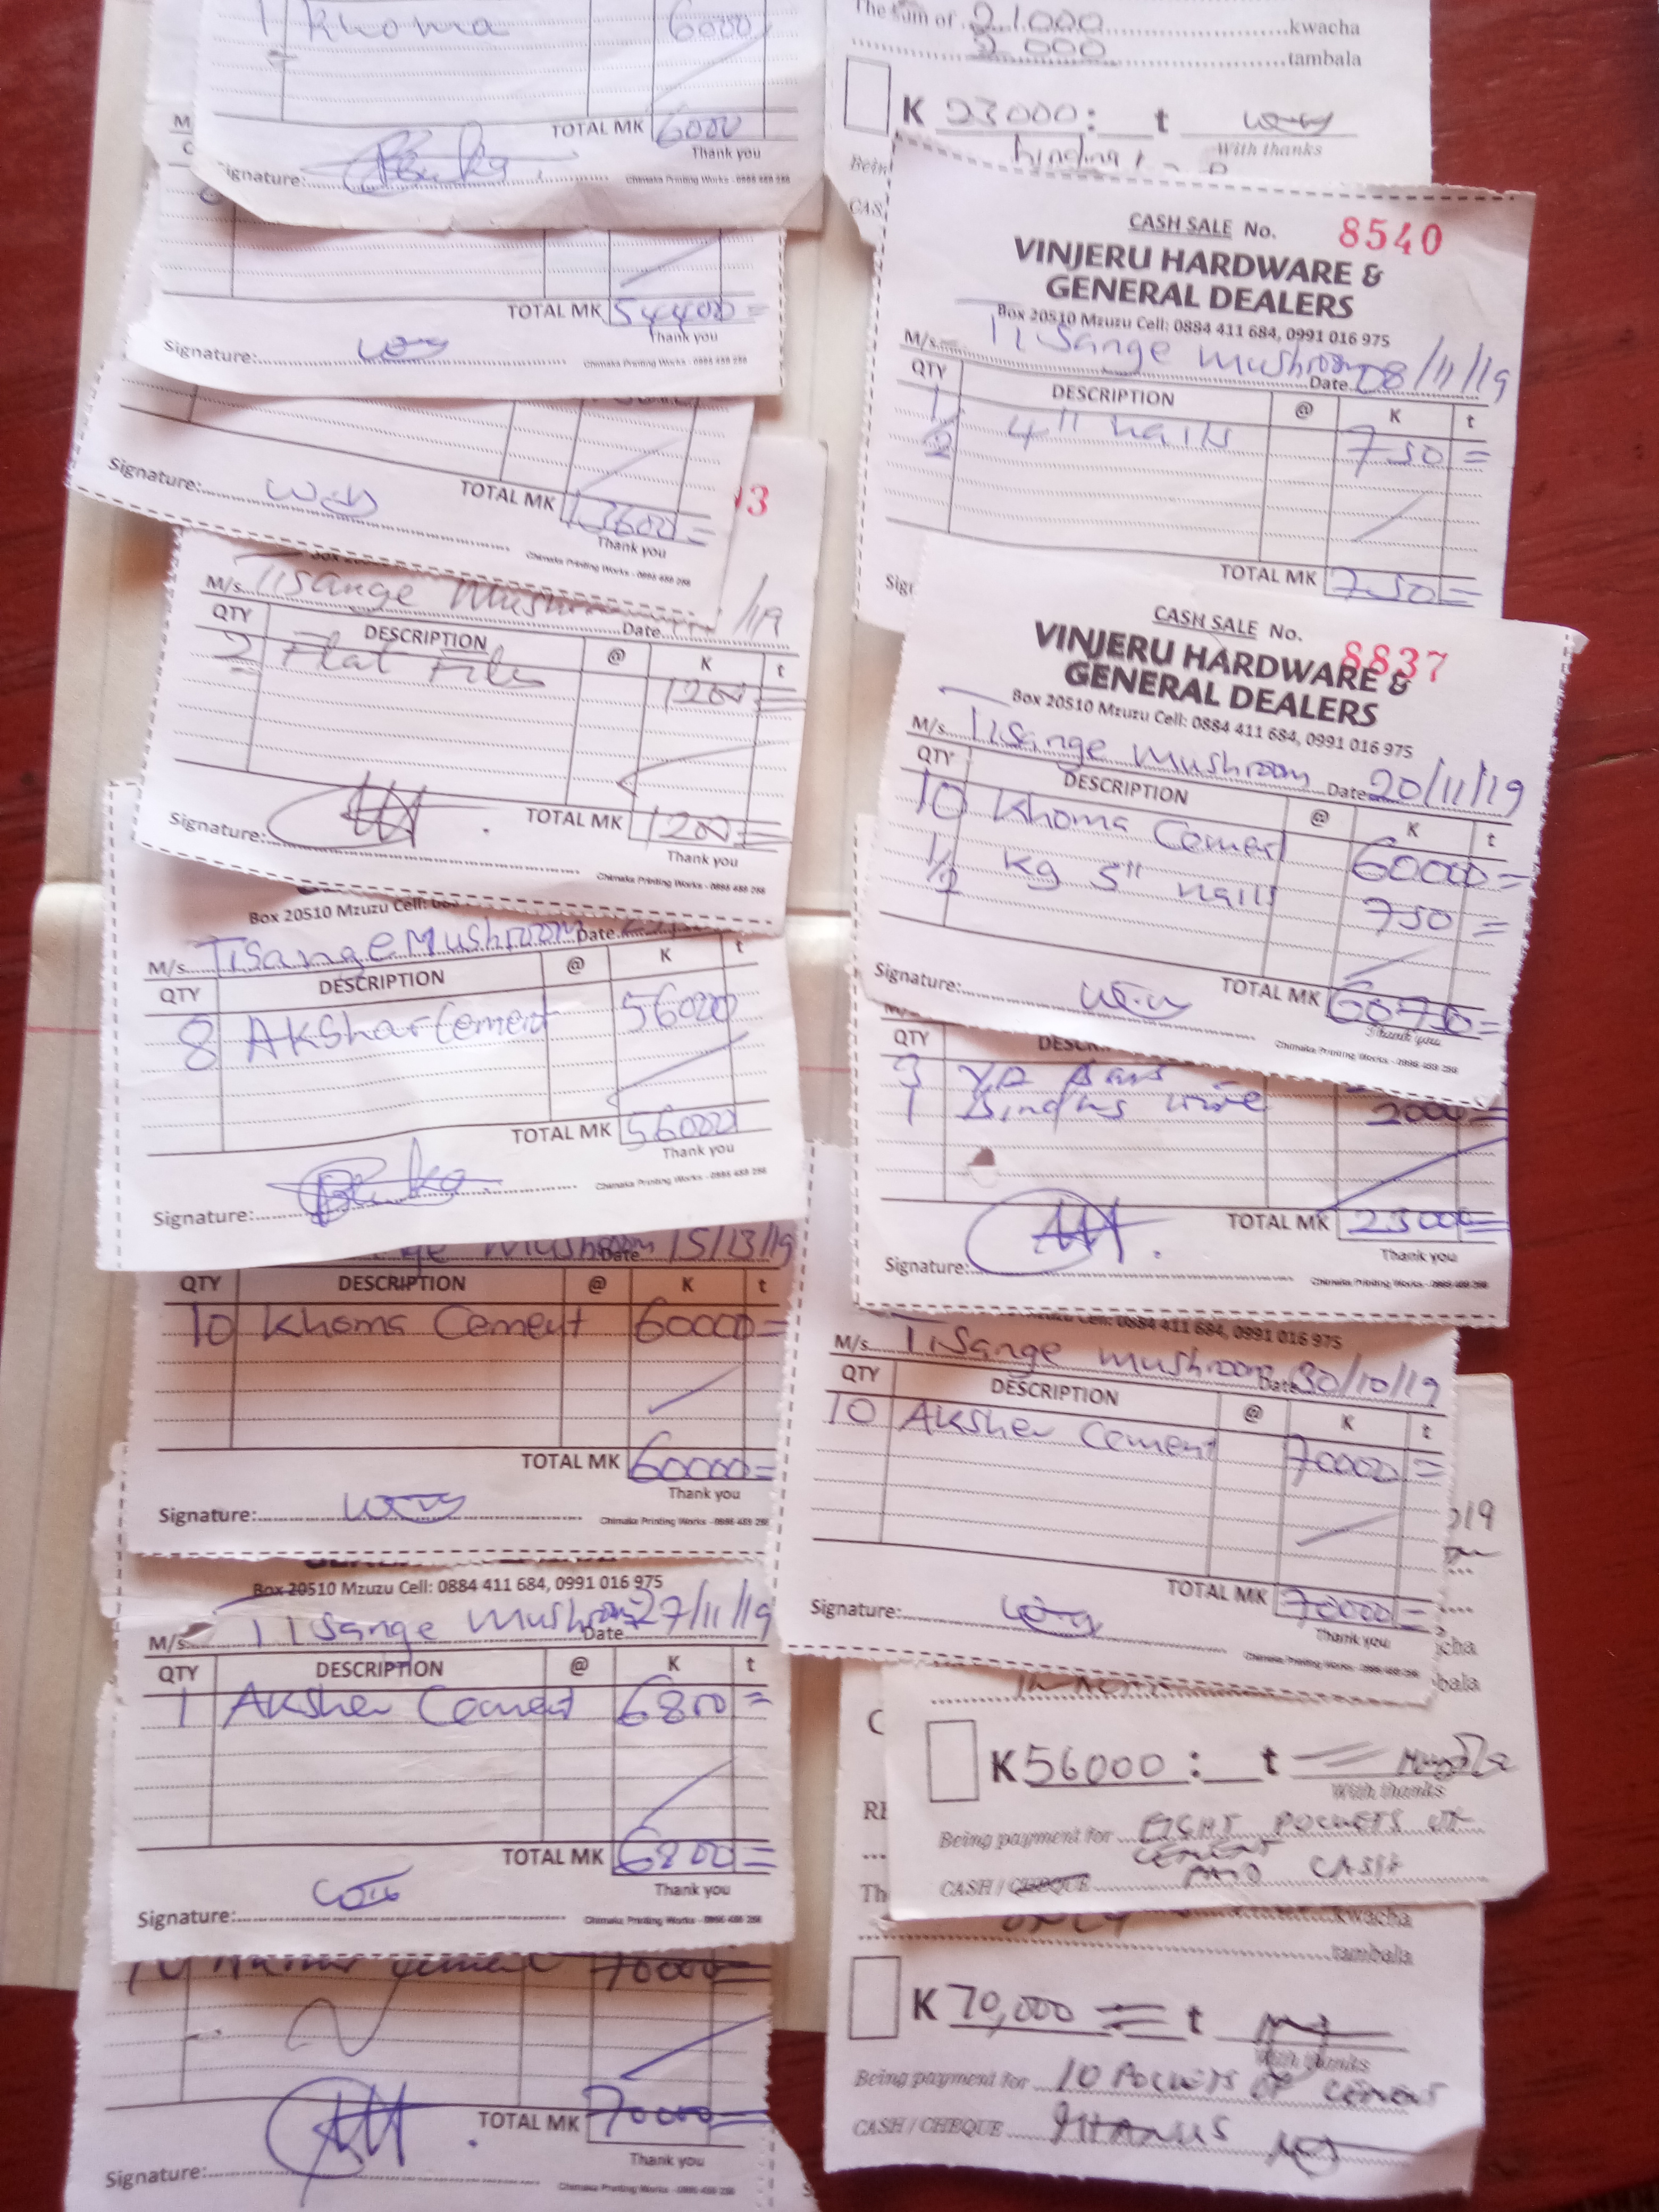 1 Khoma 6000
TOTAL MK 6000
Thank you
Signature:
Chimaka Printing Works - 0888 488 288
M
TOTAL MK 54400=
Thank you
Signature:
Chimaka Printing Works - 0888 488 288
TOTAL MK 13600=
Thank you
Signature:
Chimaka Printing Works - 0888 488 288
93
M/s Tisange Mushroom
Date /19
QTY DESCRIPTION @ K t
2 Flat Files 1200=
TOTAL MK 1200=
Thank you
Signature:
Chimaka Printing Works - 0888 488 288
Box 20510 Mzuzu Cell:
M/s Tisange Mushroom Date
QTY DESCRIPTION @ K t
8 Akshar Cement 56000
TOTAL MK 56000
Thank you
Signature:
Chimaka Printing Works - 0888 488 288
nge Mushroom Date 15/13/19
QTY DESCRIPTION @ K t
10 Khoma Cement 60000=
TOTAL MK 60000=
Thank you
Signature:
Chimaka Printing Works - 0888 488 288
Box 20510 Mzuzu Cell: 0884 411 684, 0991 016 975
M/s Tisange Mushroom Date 27/11/19
QTY DESCRIPTION @ K t
1 Aksher Cement 6800=
TOTAL MK 6800=
Thank you
Signature:
Chimaka Printing Works - 0888 488 288
10 cement 70000=
TOTAL MK 70000=
Thank you
Signature:
Chimaka Printing Works - 0888 488 288
The sum of 21000 kwacha
2000 tambala
K 23000: t
With thanks
Bein binding
CAS
CASH SALE No. 8540
VINJERU HARDWARE &
GENERAL DEALERS
Box 20510 Mzuzu Cell: 0884 411 684, 0991 016 975
M/s Tisange Mushroom Date 08/11/19
QTY DESCRIPTION @ K t
1/2 4" nails 750=
TOTAL MK 750=
Sig
CASH SALE No. 8837
VINJERU HARDWARE &
GENERAL DEALERS
Box 20510 Mzuzu Cell: 0884 411 684, 0991 016 975
M/s Tisange Mushroom Date 20/11/19
QTY DESCRIPTION @ K t
10 Khoma Cement 60000=
1/2 kg 5" nails 750=
TOTAL MK 60750=
Thank you
Signature:
Chimaka Printing Works - 0888 488 288
QTY DESCR
3 Y12 Bars
1 Binding wire 2000=
TOTAL MK 23000=
Thank you
Signature:
Chimaka Printing Works - 0888 488 288
Mzuzu Cell: 0884 411 684, 0991 016 975
M/s Tisange Mushroom Date 30/10/19
QTY DESCRIPTION @ K t
10 Aksher Cement 70000=
TOTAL MK 70000=
Thank you
Signature:
Chimaka Printing Works - 0888 488 288
19
cha
bala
C
K 56000 : t
With thanks
RE
Being payment for EIGHT POCKETS OF
CEMENT
Th
CASH / CHEQUE PAID CASH
ONLY kwacha
tambala
K 70,000 = t
With thanks
Being payment for 10 POCKETS OF CEMENT
CASH / CHEQUE THANKS